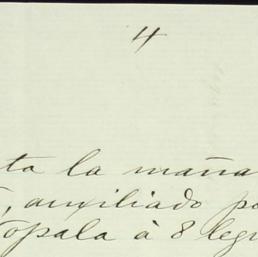 4
ta la maña
, auxiliado po
opala à 8 leg